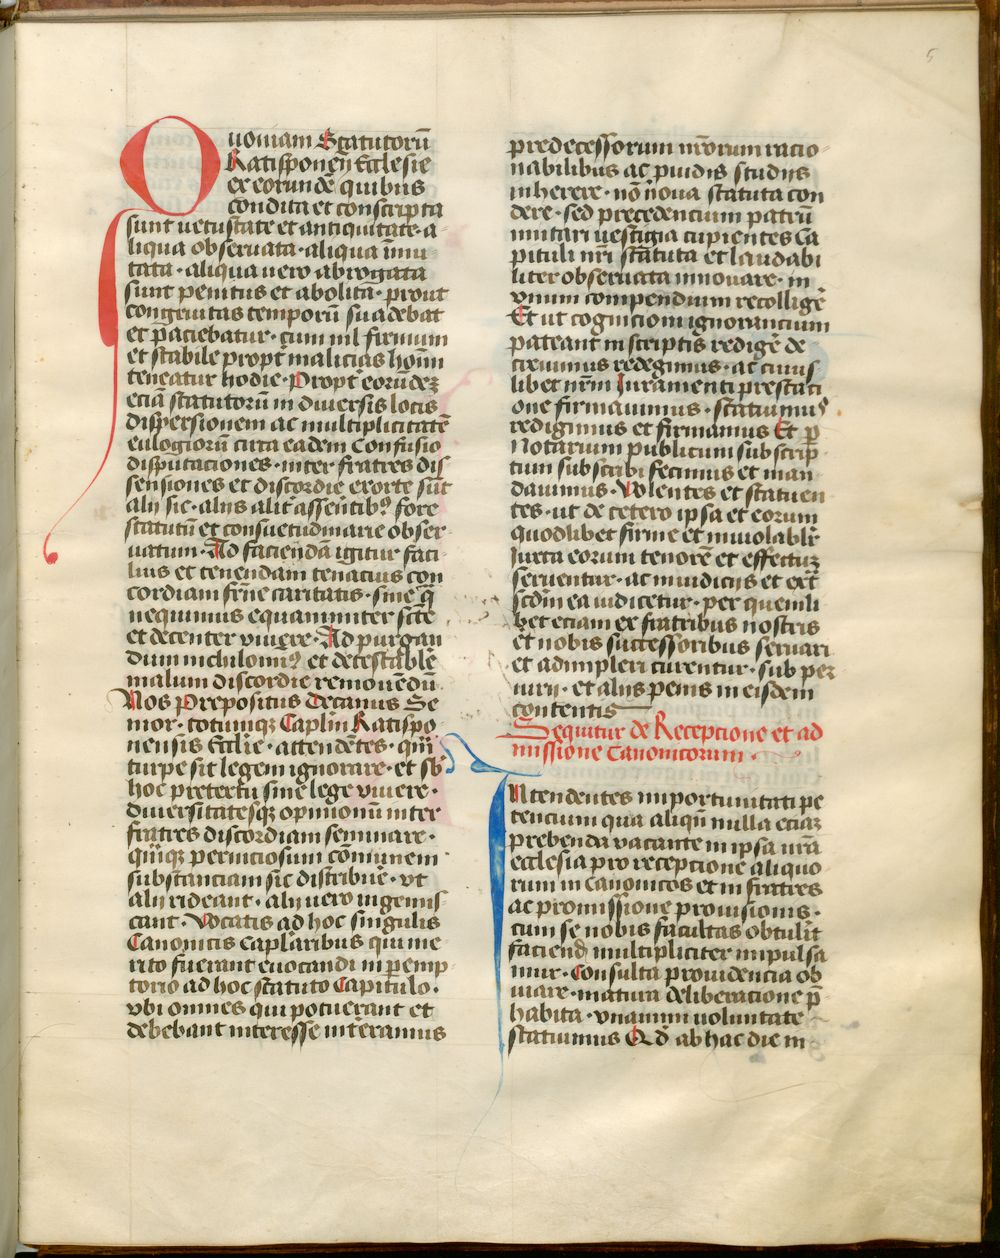 5
Quoniam Statutorū
Ratisponeñ Ecclesie
ex eorundē quibus
condita et conscripta
sunt uetustate et antiquitate · a
liqua obseruata · aliqua īmu
tata · aliqua uero abrogata
sunt penitus et abolita · prout
congruitas temporū suadebat
et paciebatur · cum nil firmum
et stabile propť malicias hoīm
teneatur hodie · Propť eorūdez
eciā statutorū in diuersis locis
dispersionem ac multiplicitatē
eulogiorū circa eadem Confusio
disputaciones · inter fratres dis
sensiones et discordie exorte sūt
alij sic · alijs aliť assentibꝰ fore
statutū et consuetudinarie obser
uatum · Ad facienda igitur faci
lius et tenendam tenacius con
cordiam frn̄e caritatis · sine q̄
nequimus equanimiter scīte
et decenter viuere · Ad purgan
dum nichilominꝰ et detestabile
malum discordie remouēdū
Nos Prepositus Decanus Se
nior · totumqꝫ Caplm̄ Ratispo
nensis Ecclie · attendētes · qm̄
turpe sit legem ignorare · et sb̄
hoc pretextu sine lege viuere ·
diuersitatesqꝫ opinionū inter
fratres discordiam seminare ·
quīqꝫ perniciosum cōmunem
substanciam sic distribuē · vt
alij rideant · alij uero ingemis
cant · Vocatis ad hoc singulis
Canonicis Caplaribus qui me
rito fuerant euocandi in peremp
torio ad hoc statuto Capitulo ·
vbi omnes qui potuerant et
debebant interesse interamus
predecessorum nr̄orum racio
nabilibus ac prudīs studijs
inherere · nō noua statuta con
dere · sed precedencium patrū
imitari uestigia cupientes Ca
pituli nr̄i statuta et laudabi
liter obseruata innouare · in
vnum compendium recolligē
Et ut cognicioni ignorancium
pateant in scriptis redigē de
creuimus redegimus · ac cuius
libet nr̄m Iuramenti prestaci
one firmauimus · statuimus
redigimus et firmamus Et ꝑ
Notarium publicum subscrip
tum subscribi fecimus et man
dauimus · Volentes et statuen
tes · ut de cetero ipsa et eorum
quodlibet firme et inuiolabilr̄
Iuxta eorum tenorē et effectuꝫ
seruentur · ac in iudicijs et ext̄
scdm̄ ea iudicetur · per quemli
bet eciam ex fratribus nostris
et nobis successoribus seruari
et adimpleri curentur · sub per
iurij · et alijs penis in eisdem
contentis
Sequitur de Receptione et ad
missione Canonicorum ·
INtendentes importunitati pe
tencium qua aliqn̄ nulla eciaꝫ
prebenda vacante in ipsa nr̄a
ecclesia pro receptione aliquo
rum in Canonicos et in fratres
ac promissione prouisionis ·
cum se nobis facultas obtulit
faciendi multipliciter impulsa
mur · Consulta prouidencia ob
uiare · matura deliberacione p̄
habita · vnanimi uoluntate
statuimus Qd̄ ab hac die in